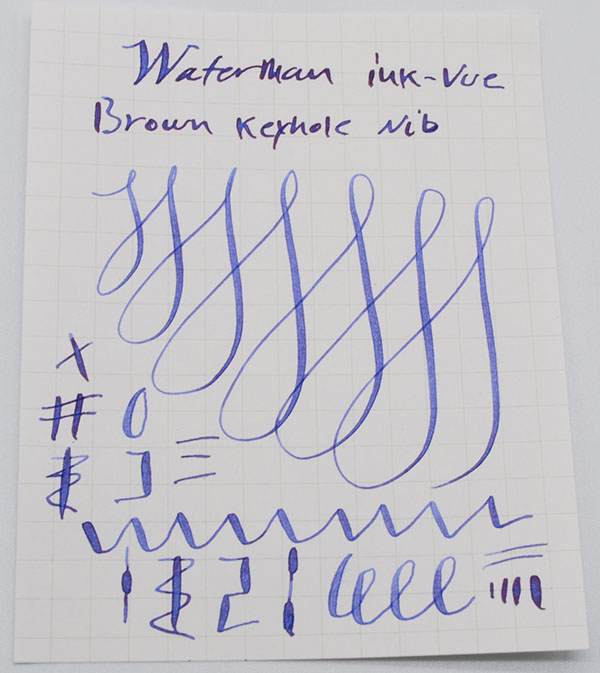 Waterman ink-Vue
Brown Keyhole Nib